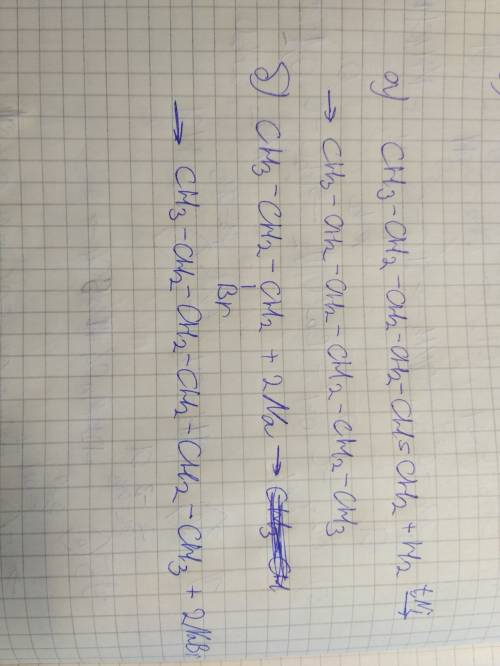 а) CH3-CH2-CH2-CH2-CH=CH2 + H2 t,Ni→
→ CH3-CH2-CH2-CH2-CH2-CH3
б) CH3-CH2-CH2 + 2Na →
Br
→ CH3-CH2-CH2-CH2-CH2-CH3 + 2NaBr